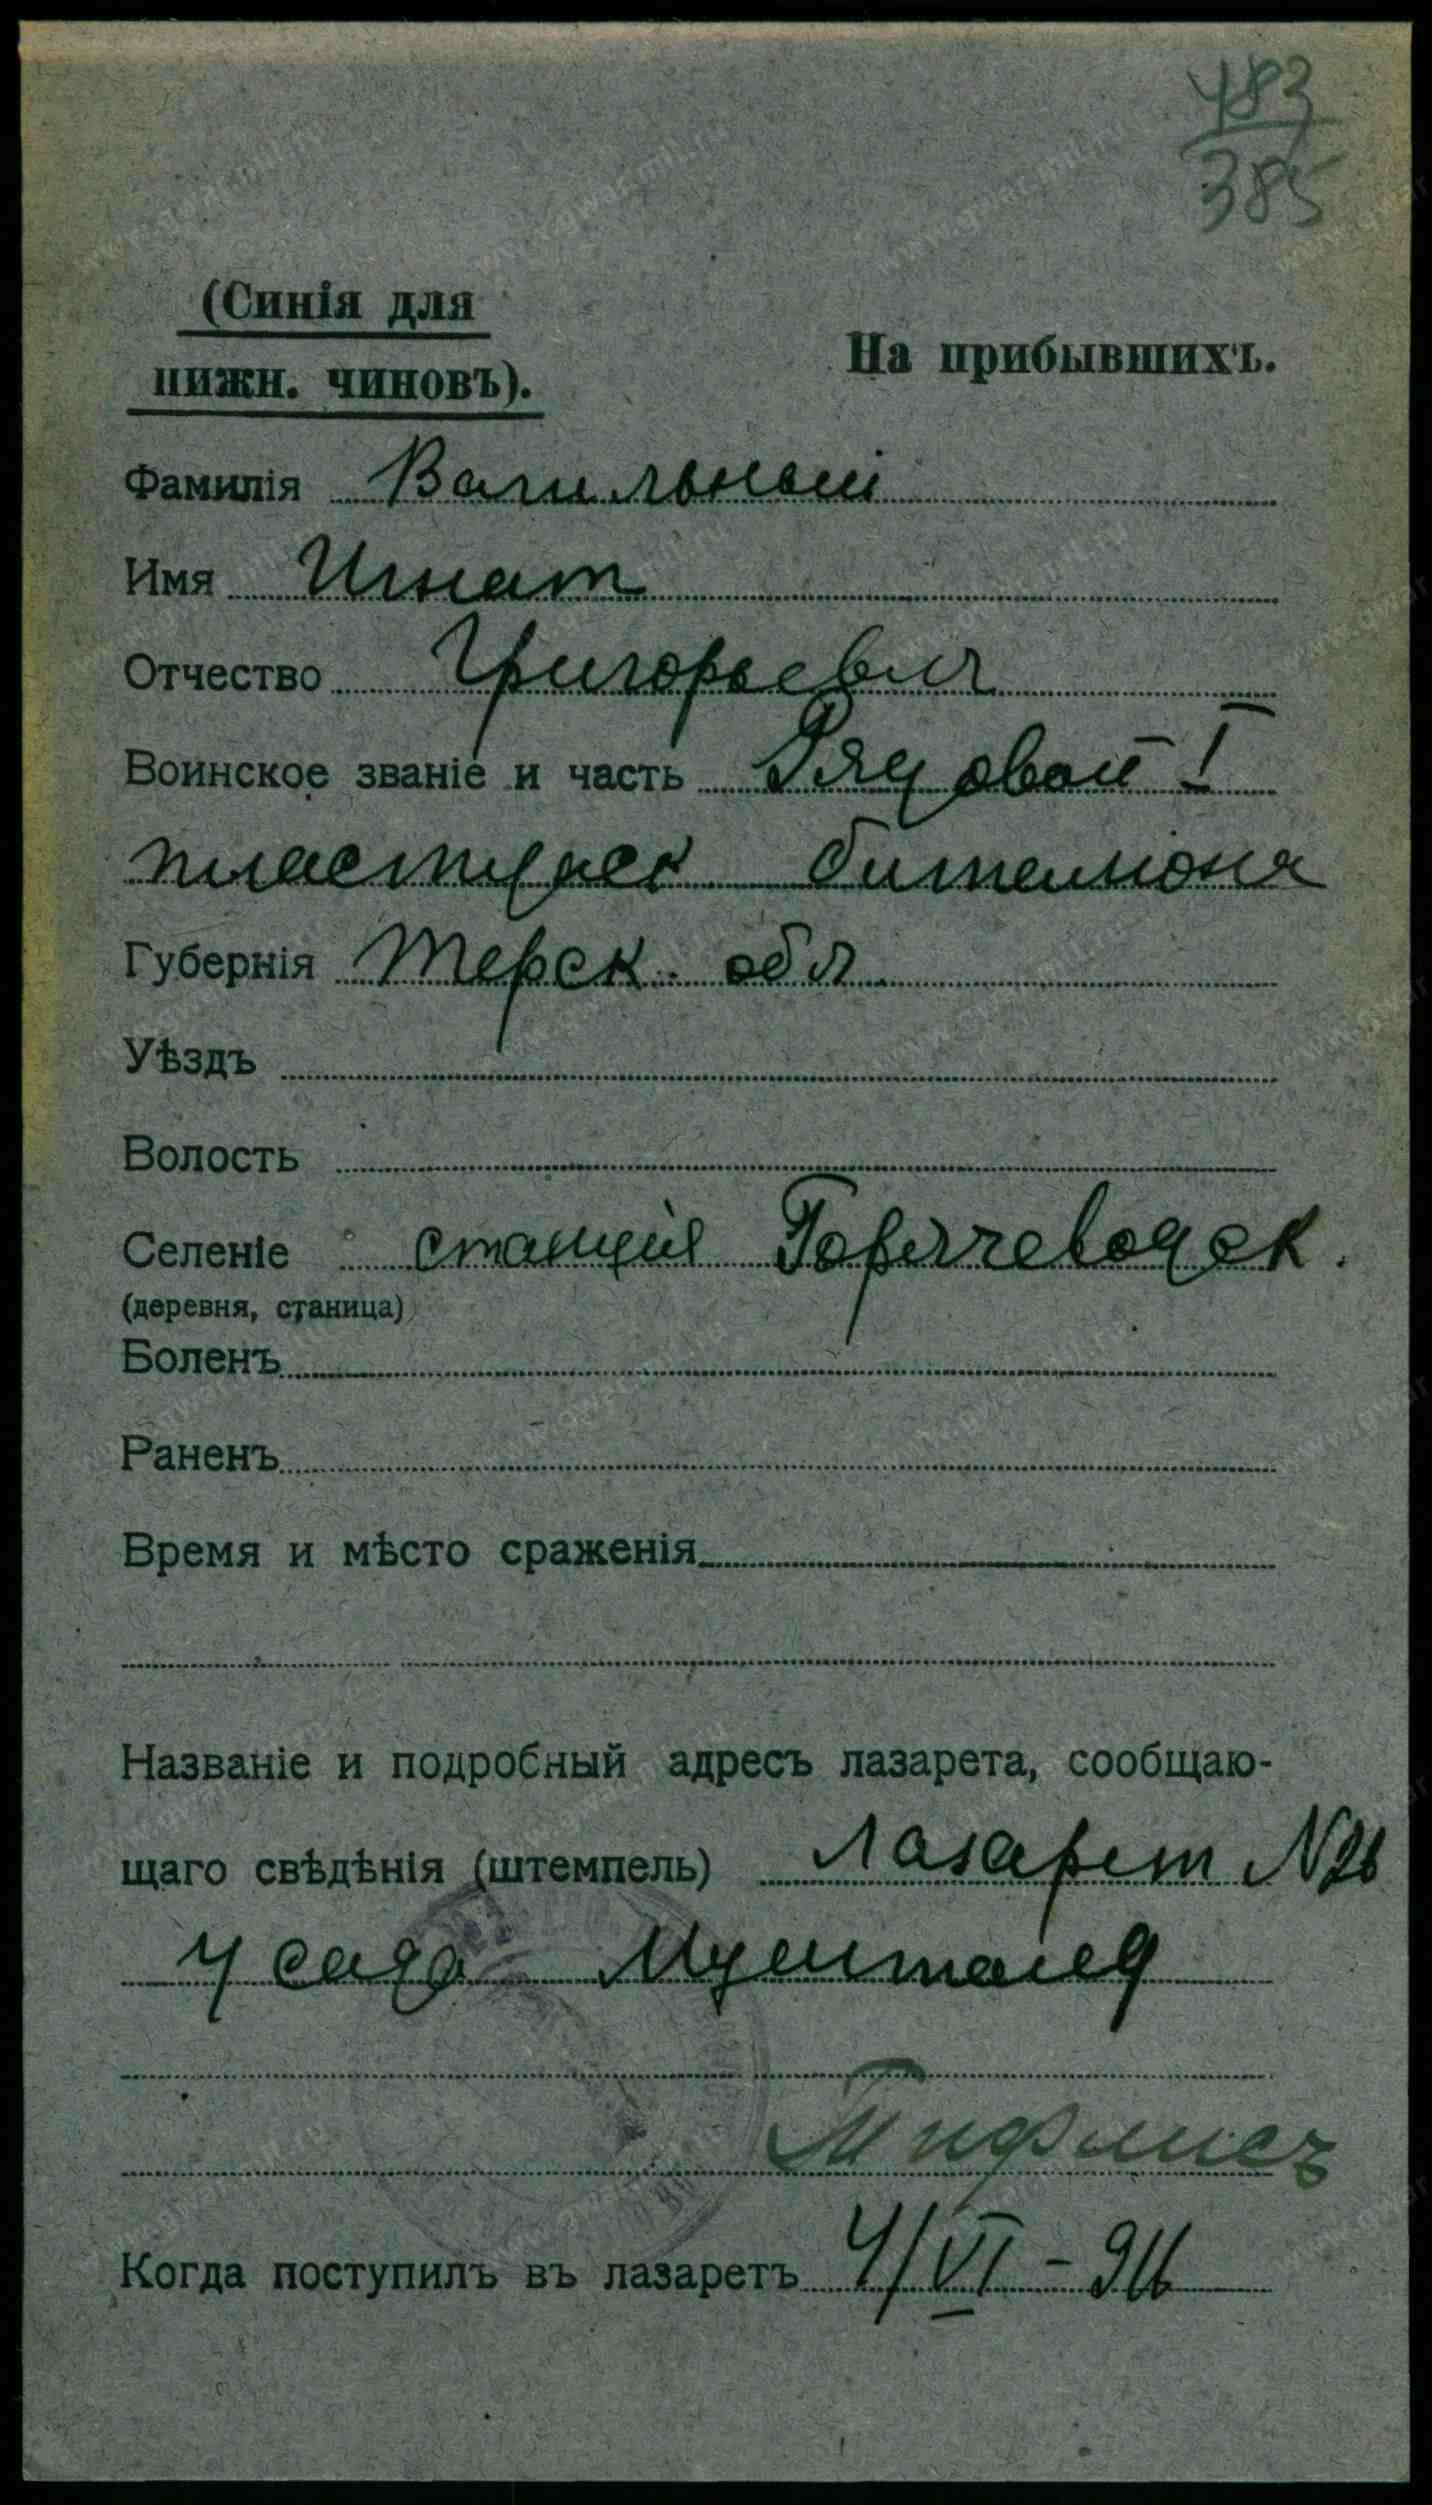 483
385
(Синія для
нижн. чиновъ).
На прибывшихъ.
Фамилія Вагильный
Имя Игнат
Отчество Григорьевич
Воинское званіе и часть Рядовой I
пластунск батальона
Губернія Терск. обл.
Уѣздъ
Волость
Селеніе станция Горячеводск.
(деревня, станица)
Боленъ
Раненъ
Время и мѣсто сраженія
Названіе и подробный адресъ лазарета, сообщаю-
щаго свѣдѣнія (штемпель) Лазарет N26
у сада Муштаид
Тифлисъ
Когда поступилъ въ лазаретъ 4/VI - 916